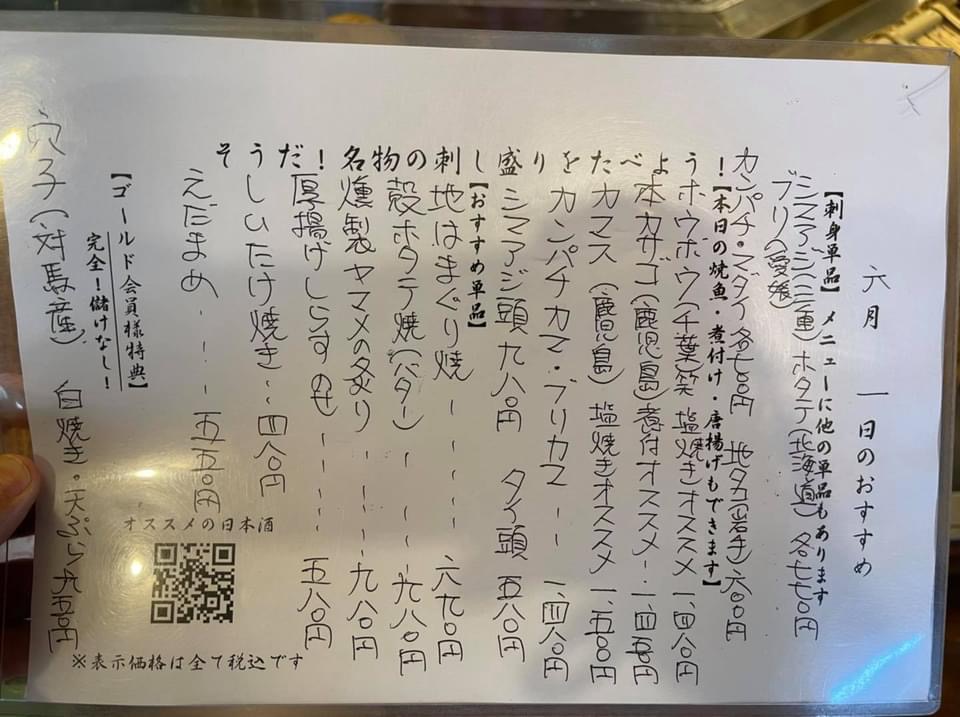 六月 一日のおすすめ
【刺身単品】 メニューに他の単品もあります
シマアジ(三重) ホタテ(北海道) 各七七〇円
ブリ(愛媛)
カンパチ・マダイ 各七〇〇円 地タコ(岩手)六〇〇円
【本日の焼魚・煮付け・唐揚げもできます】
ホウボウ(千葉) 塩焼きオススメ 一、四八〇円
本カサゴ(鹿児島)煮付オススメ 一、四五〇円
カマス(鹿児島)塩焼きオススメ 一、五〇〇円
カンパチカマ・ブリカマ 一、四八〇円
シマアジ頭 九八〇円 タイ頭 五八〇円
【おすすめ単品】
地はまぐり焼 六九〇円
殻ホタテ焼(バター) 九八〇円
燻製ヤマメの炙り 九八〇円
厚揚げしらすのせ 五八〇円
しいたけ焼き 四八〇円
えだまめ 五五〇円
そうだ!名物の刺し盛りをたべよう!
【ゴールド会員様特典】
完全!儲けなし!
穴子(対馬産) 白焼き・天ぷら九五〇円
オススメの日本酒
※表示価格は全て税込です